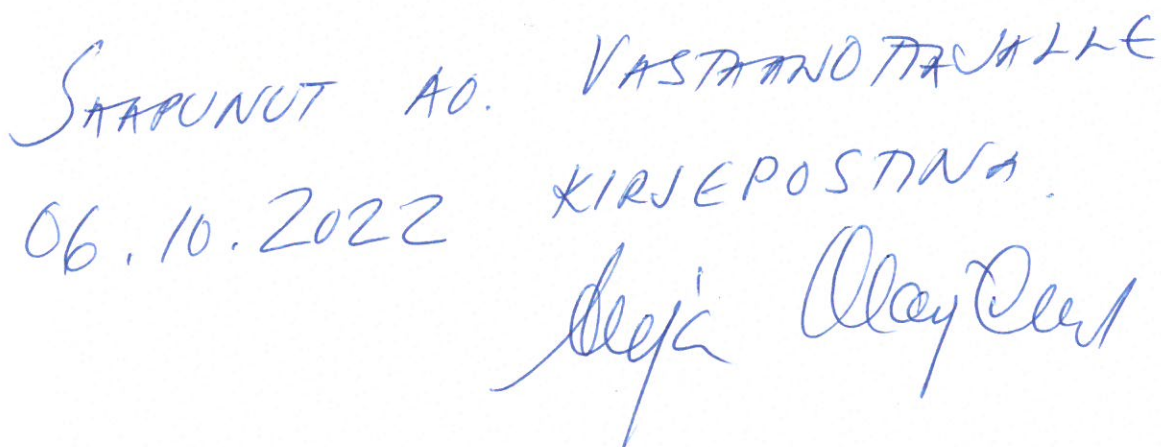 SAAPUNUT AO. VASTAANOTTAJALLE
06.10.2022 KIRJEPOSTINA.